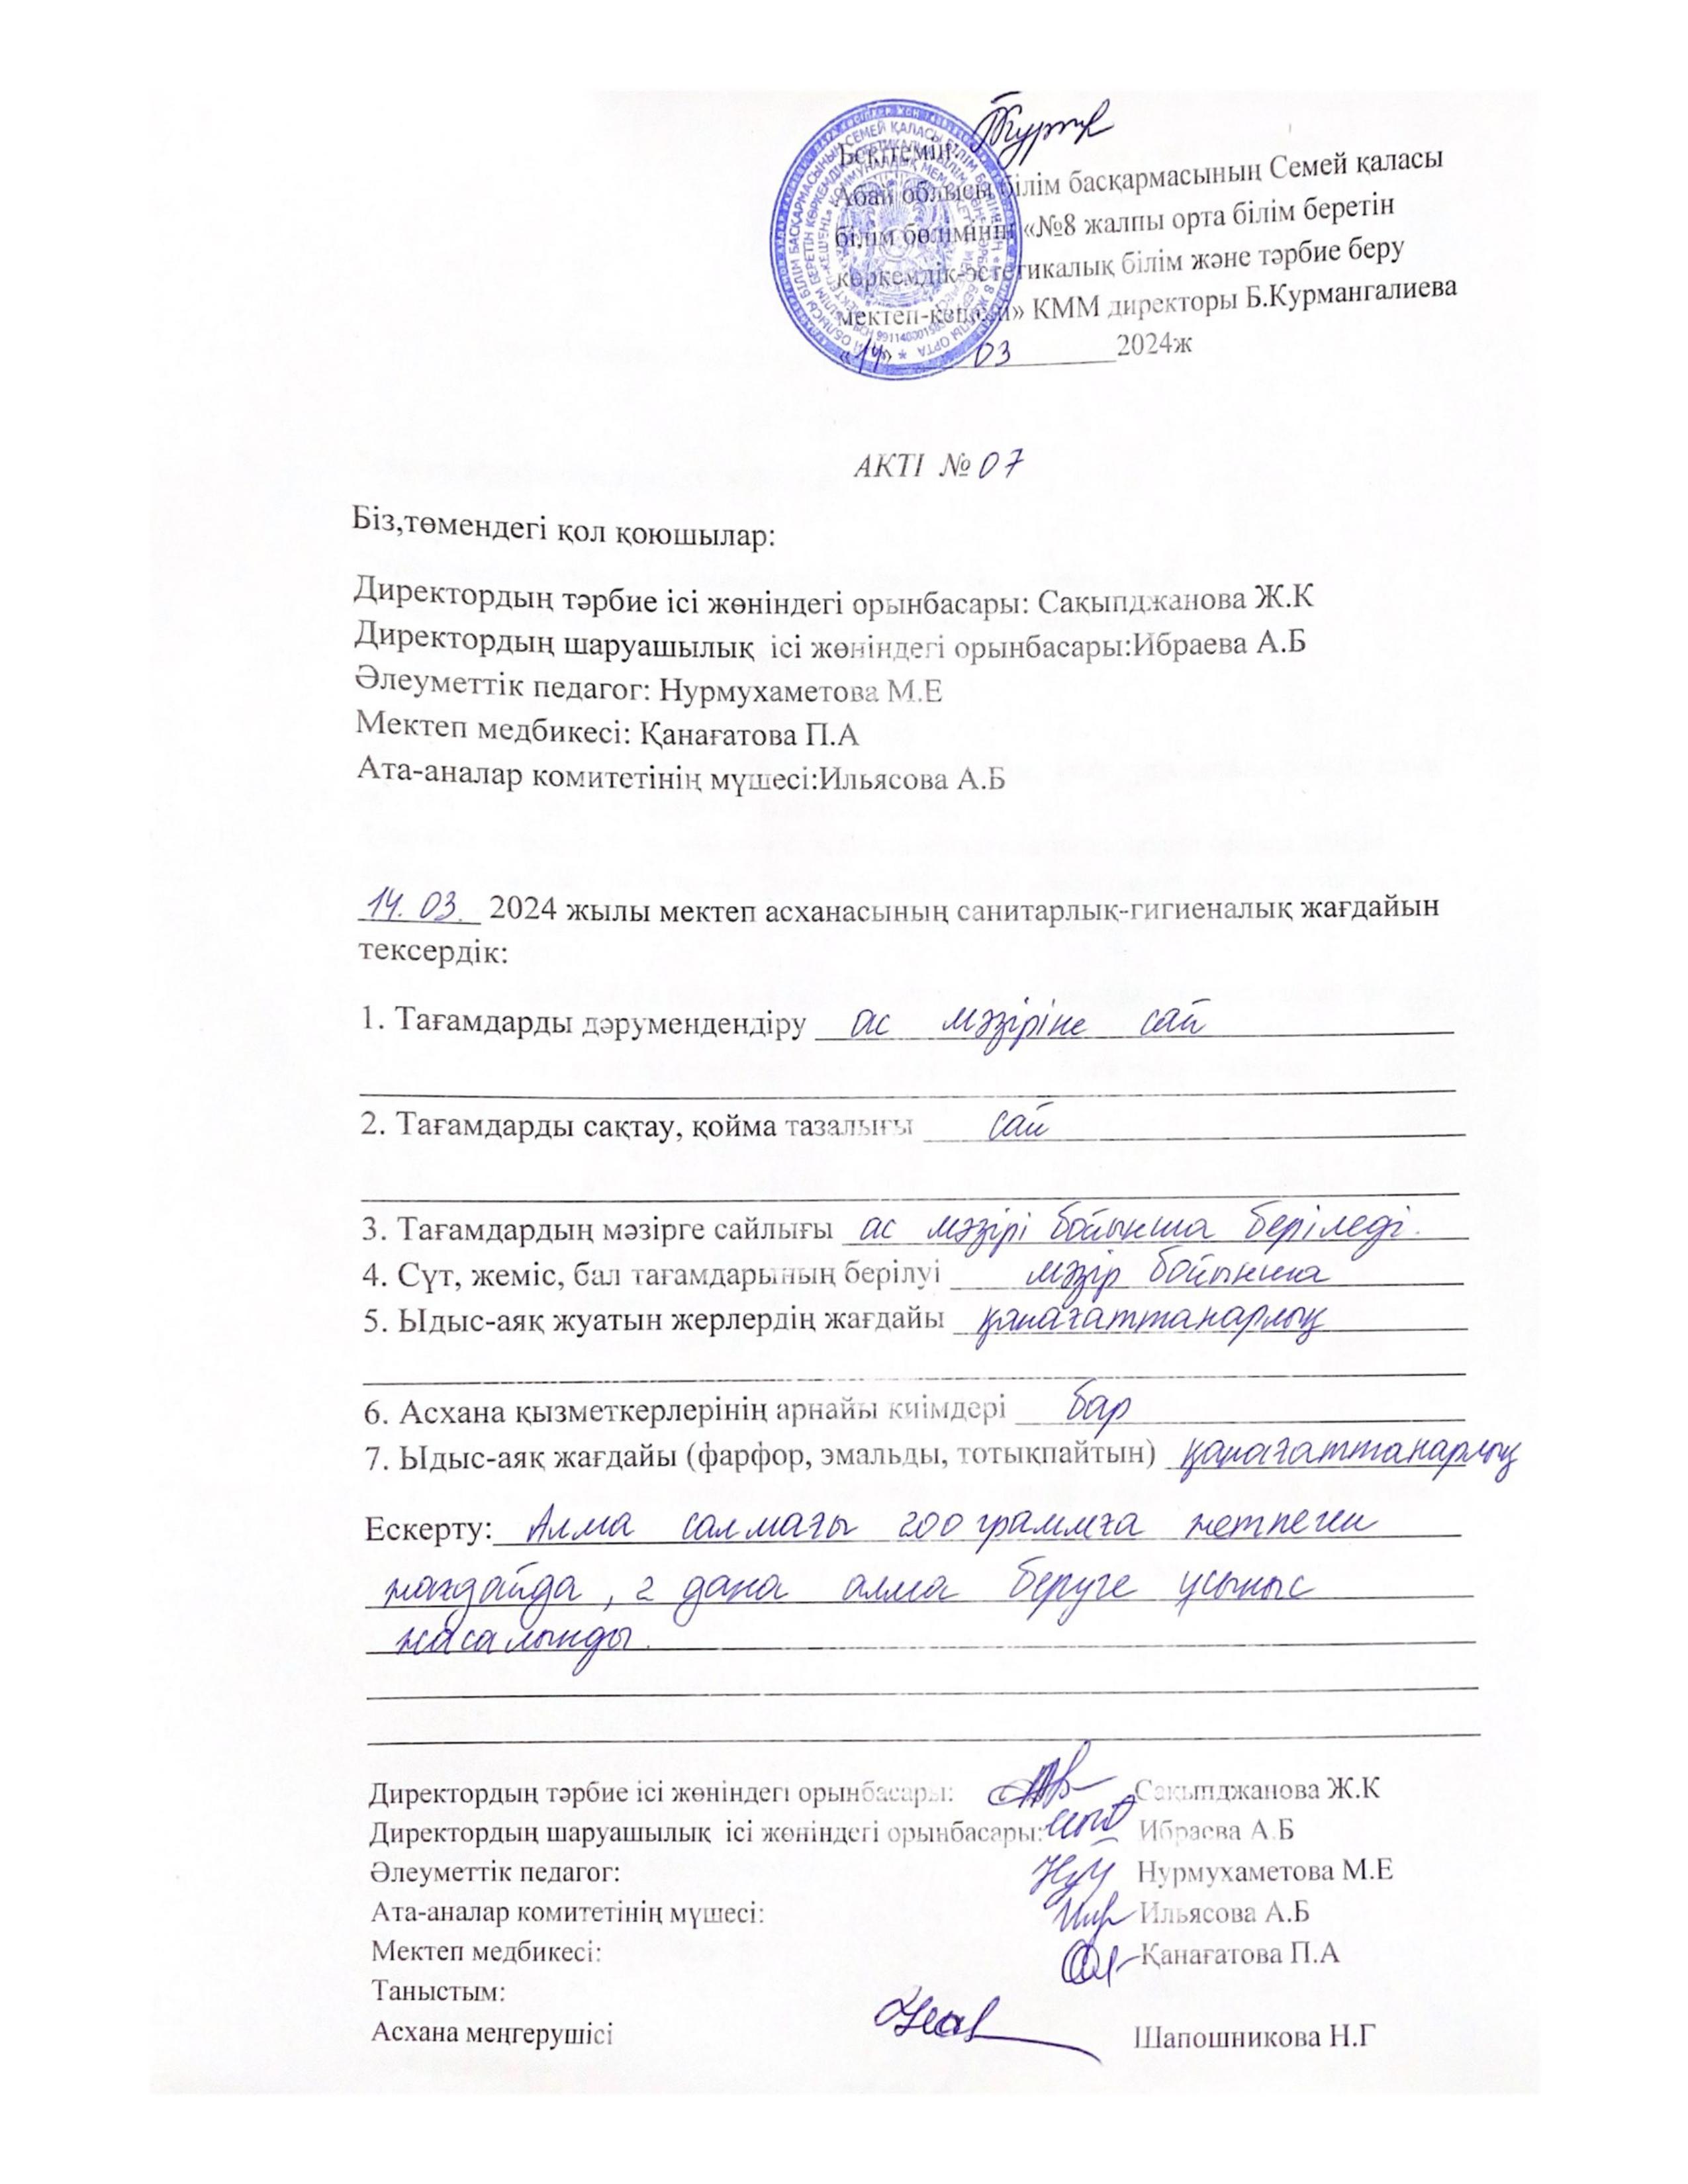 Бекітемін:
Абай облысы білім басқармасының Семей қаласы
білім бөлімінің «№8 жалпы орта білім беретін
көркемдік-эстетикалық білім және тәрбие беру
мектеп-кешені» КММ директоры Б.Курмангалиева
«14» 03 2024ж
АКТІ № 07
Біз,төмендегі қол қоюшылар:
Директордың тәрбие ісі жөніндегі орынбасары: Сақыпджанова Ж.К
Директордың шаруашылық ісі жөніндегі орынбасары:Ибраева А.Б
Әлеуметтік педагог: Нурмухаметова М.Е
Мектеп медбикесі: Қанағатова П.А
Ата-аналар комитетінің мүшесі:Ильясова А.Б
14. 03. 2024 жылы мектеп асханасының санитарлық-гигиеналық жағдайын
тексердік:
1. Тағамдарды дәрумендендіру ас мәзіріне сай
2. Тағамдарды сақтау, қойма тазалығы сай
3. Тағамдардың мәзірге сайлығы ас мәзірі бойынша беріледі.
4. Сүт, жеміс, бал тағамдарының берілуі мәзір бойынша
5. Ыдыс-аяқ жуатын жерлердің жағдайы қанағаттанарлық
6. Асхана қызметкерлерінің арнайы киімдері бар
7. Ыдыс-аяқ жағдайы (фарфор, эмальды, тотықпайтын) қанағаттанарлық
Ескерту: Алма салмағы 200 граммға жетпеген
жағдайда , 2 дана алма беруге ұсыныс
жасалынды.
Директордың тәрбие ісі жөніндегі орынбасары: Сақыпджанова Ж.К
Директордың шаруашылық ісі жөніндегі орынбасары: Ибраева А.Б
Әлеуметтік педагог: Нурмухаметова М.Е
Ата-аналар комитетінің мүшесі: Ильясова А.Б
Мектеп медбикесі: Қанағатова П.А
Таныстым:
Асхана меңгерушісі Шапошникова Н.Г